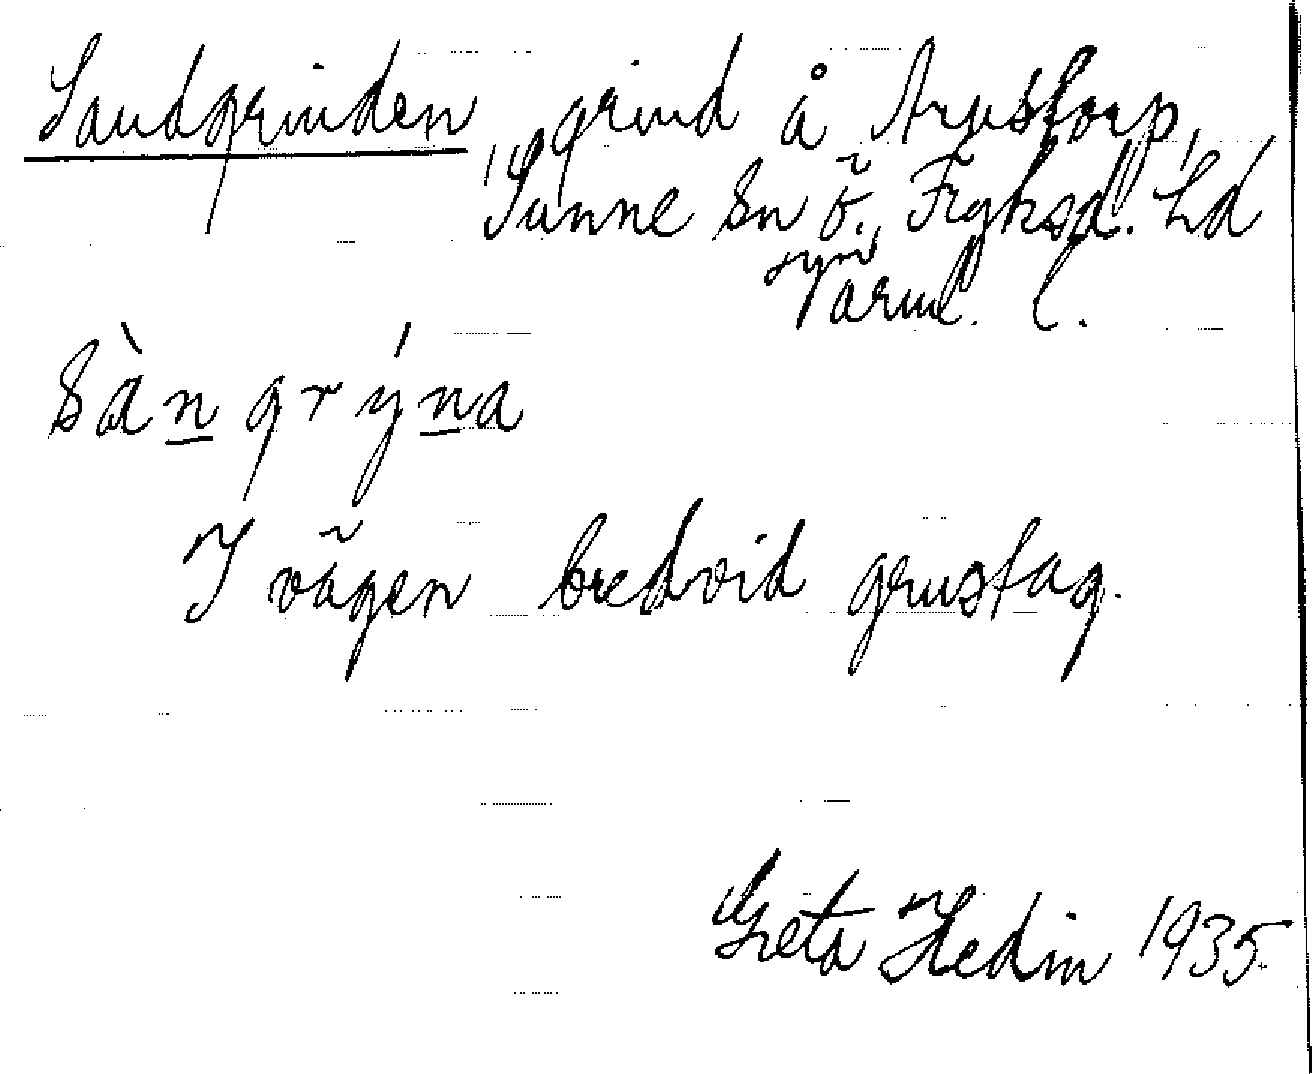 Sandgrinden, grind å Arvstorp,
Sunne Sn Ö. Fryksd. Hd
Värml. l.
sàn grýna
I vägen bredvid grustag.
Greta Hedin 1935